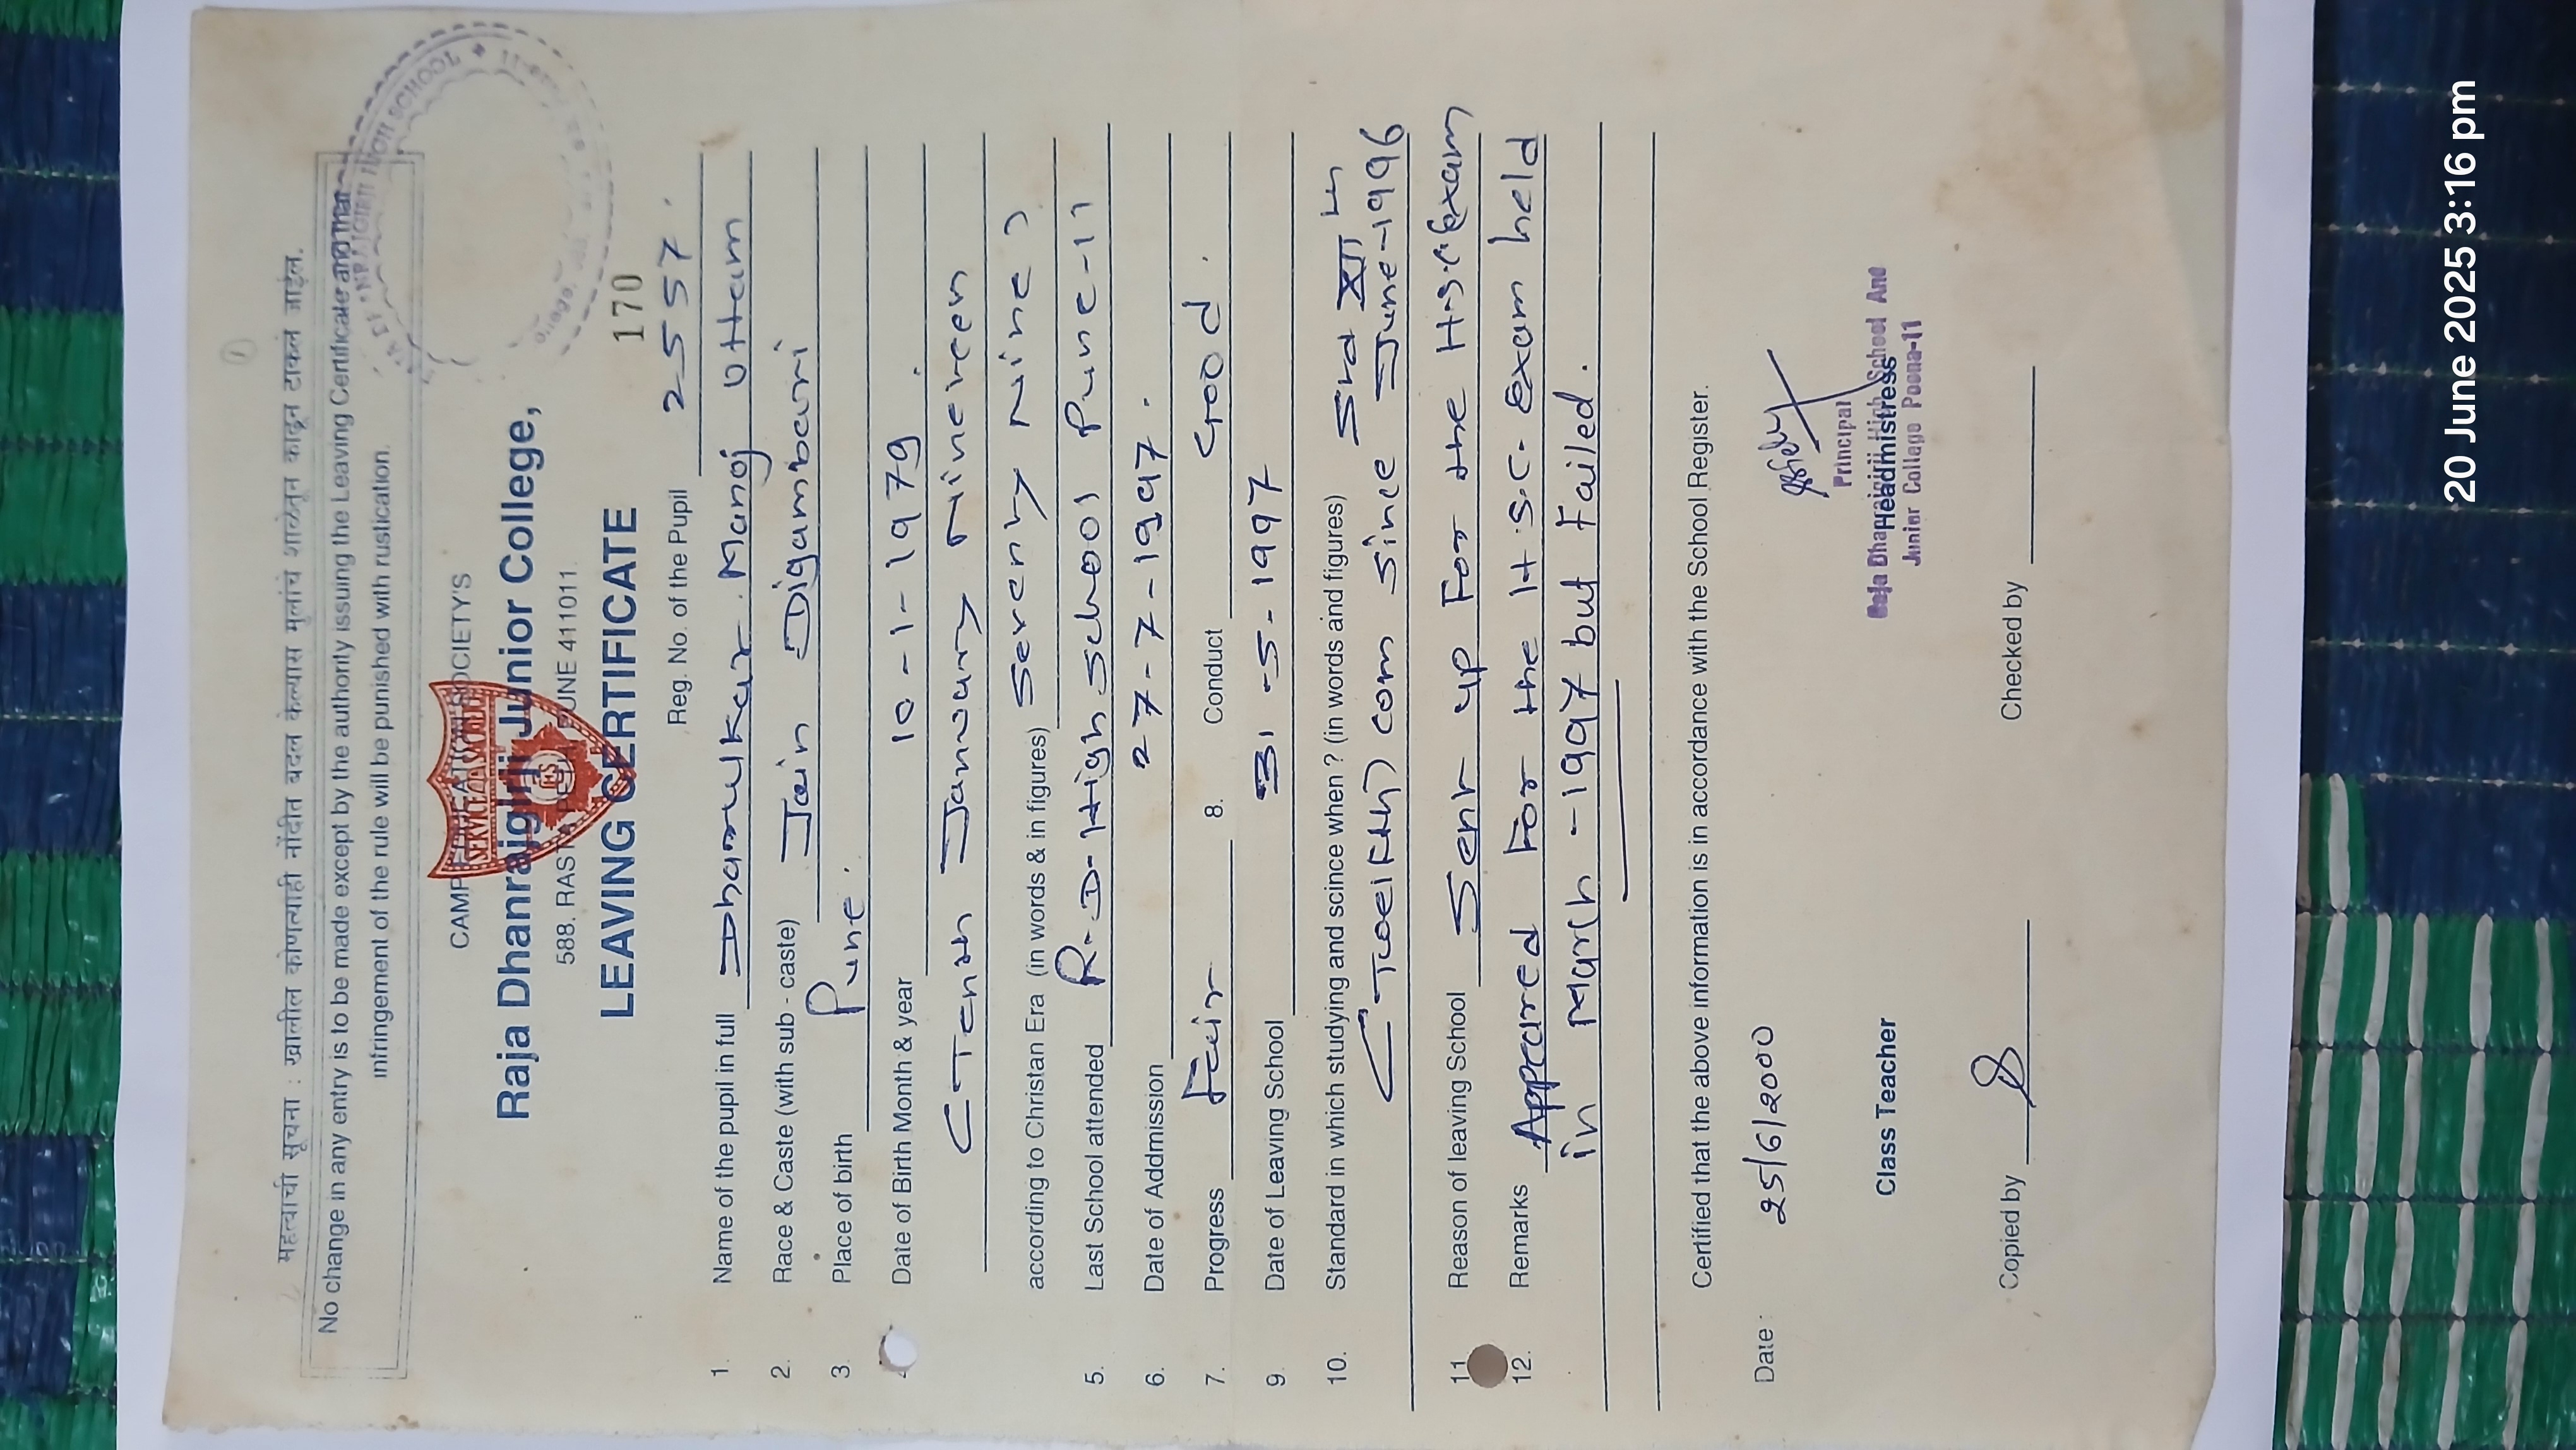 महत्वाची सूचना : खालील कोणत्याही नोंदीत बदल केल्यास मुलांचे शाळेतून काढून टाकले जाईल.
No change in any entry is to be made except by the authority issuing the Leaving Certificate and that
infringement of the rule will be punished with rustication.
JYOTI SCHOOL
CAMP EDUCATION SOCIETY'S
SERVICE LAS WORD
Raja Dhanrajgirji Junior College,
588. RASTA PETH PUNE 411011.
LEAVING CERTIFICATE 170
Reg. No. of the Pupil 2557.
1. Name of the pupil in full Dharulkar. Manoj Uttam
2. Race & Caste (with sub - caste) Jain Digambari
3. Place of birth Pune.
Date of Birth Month & year 10-1-1979.
(Tenth January Nineteen
according to Christan Era (in words & in figures) Seventy Nine)
5. Last School attended R.D. High School Pune-11
6. Date of Addmission 27-7-1997.
7. Progress Fair 8. Conduct Good.
9. Date of Leaving School 31-5-1997
10. Standard in which studying and scince when ? (in words and figures) Std XII th
(Twelfth) com since June-1996
11 Reason of leaving School Sent up For the H.S.C. Exam
12. Remarks Appeared For the H.S.C. Exam held
in March -1997 but Failed.
Certified that the above information is in accordance with the School Register.
Date : 25/6/2000
Principal
Raja Dhanrajgirji High School And
Class Teacher Headmistress
Junior College Poona-11
Copied by Checked by
20 June 2025 3:16 pm